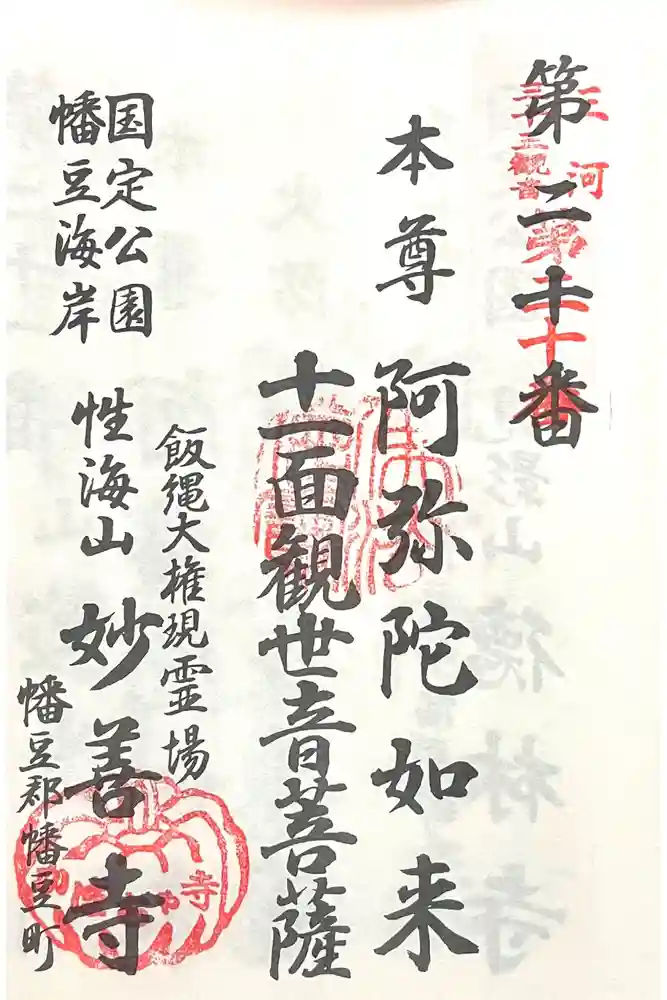 第二十番
三河
三十三観音
第二十
本尊 阿弥陀如来
十一面観世音菩薩
飯縄大権現霊場
国定公園
幡豆海岸
性海山 妙善寺
幡豆郡幡豆町
寺